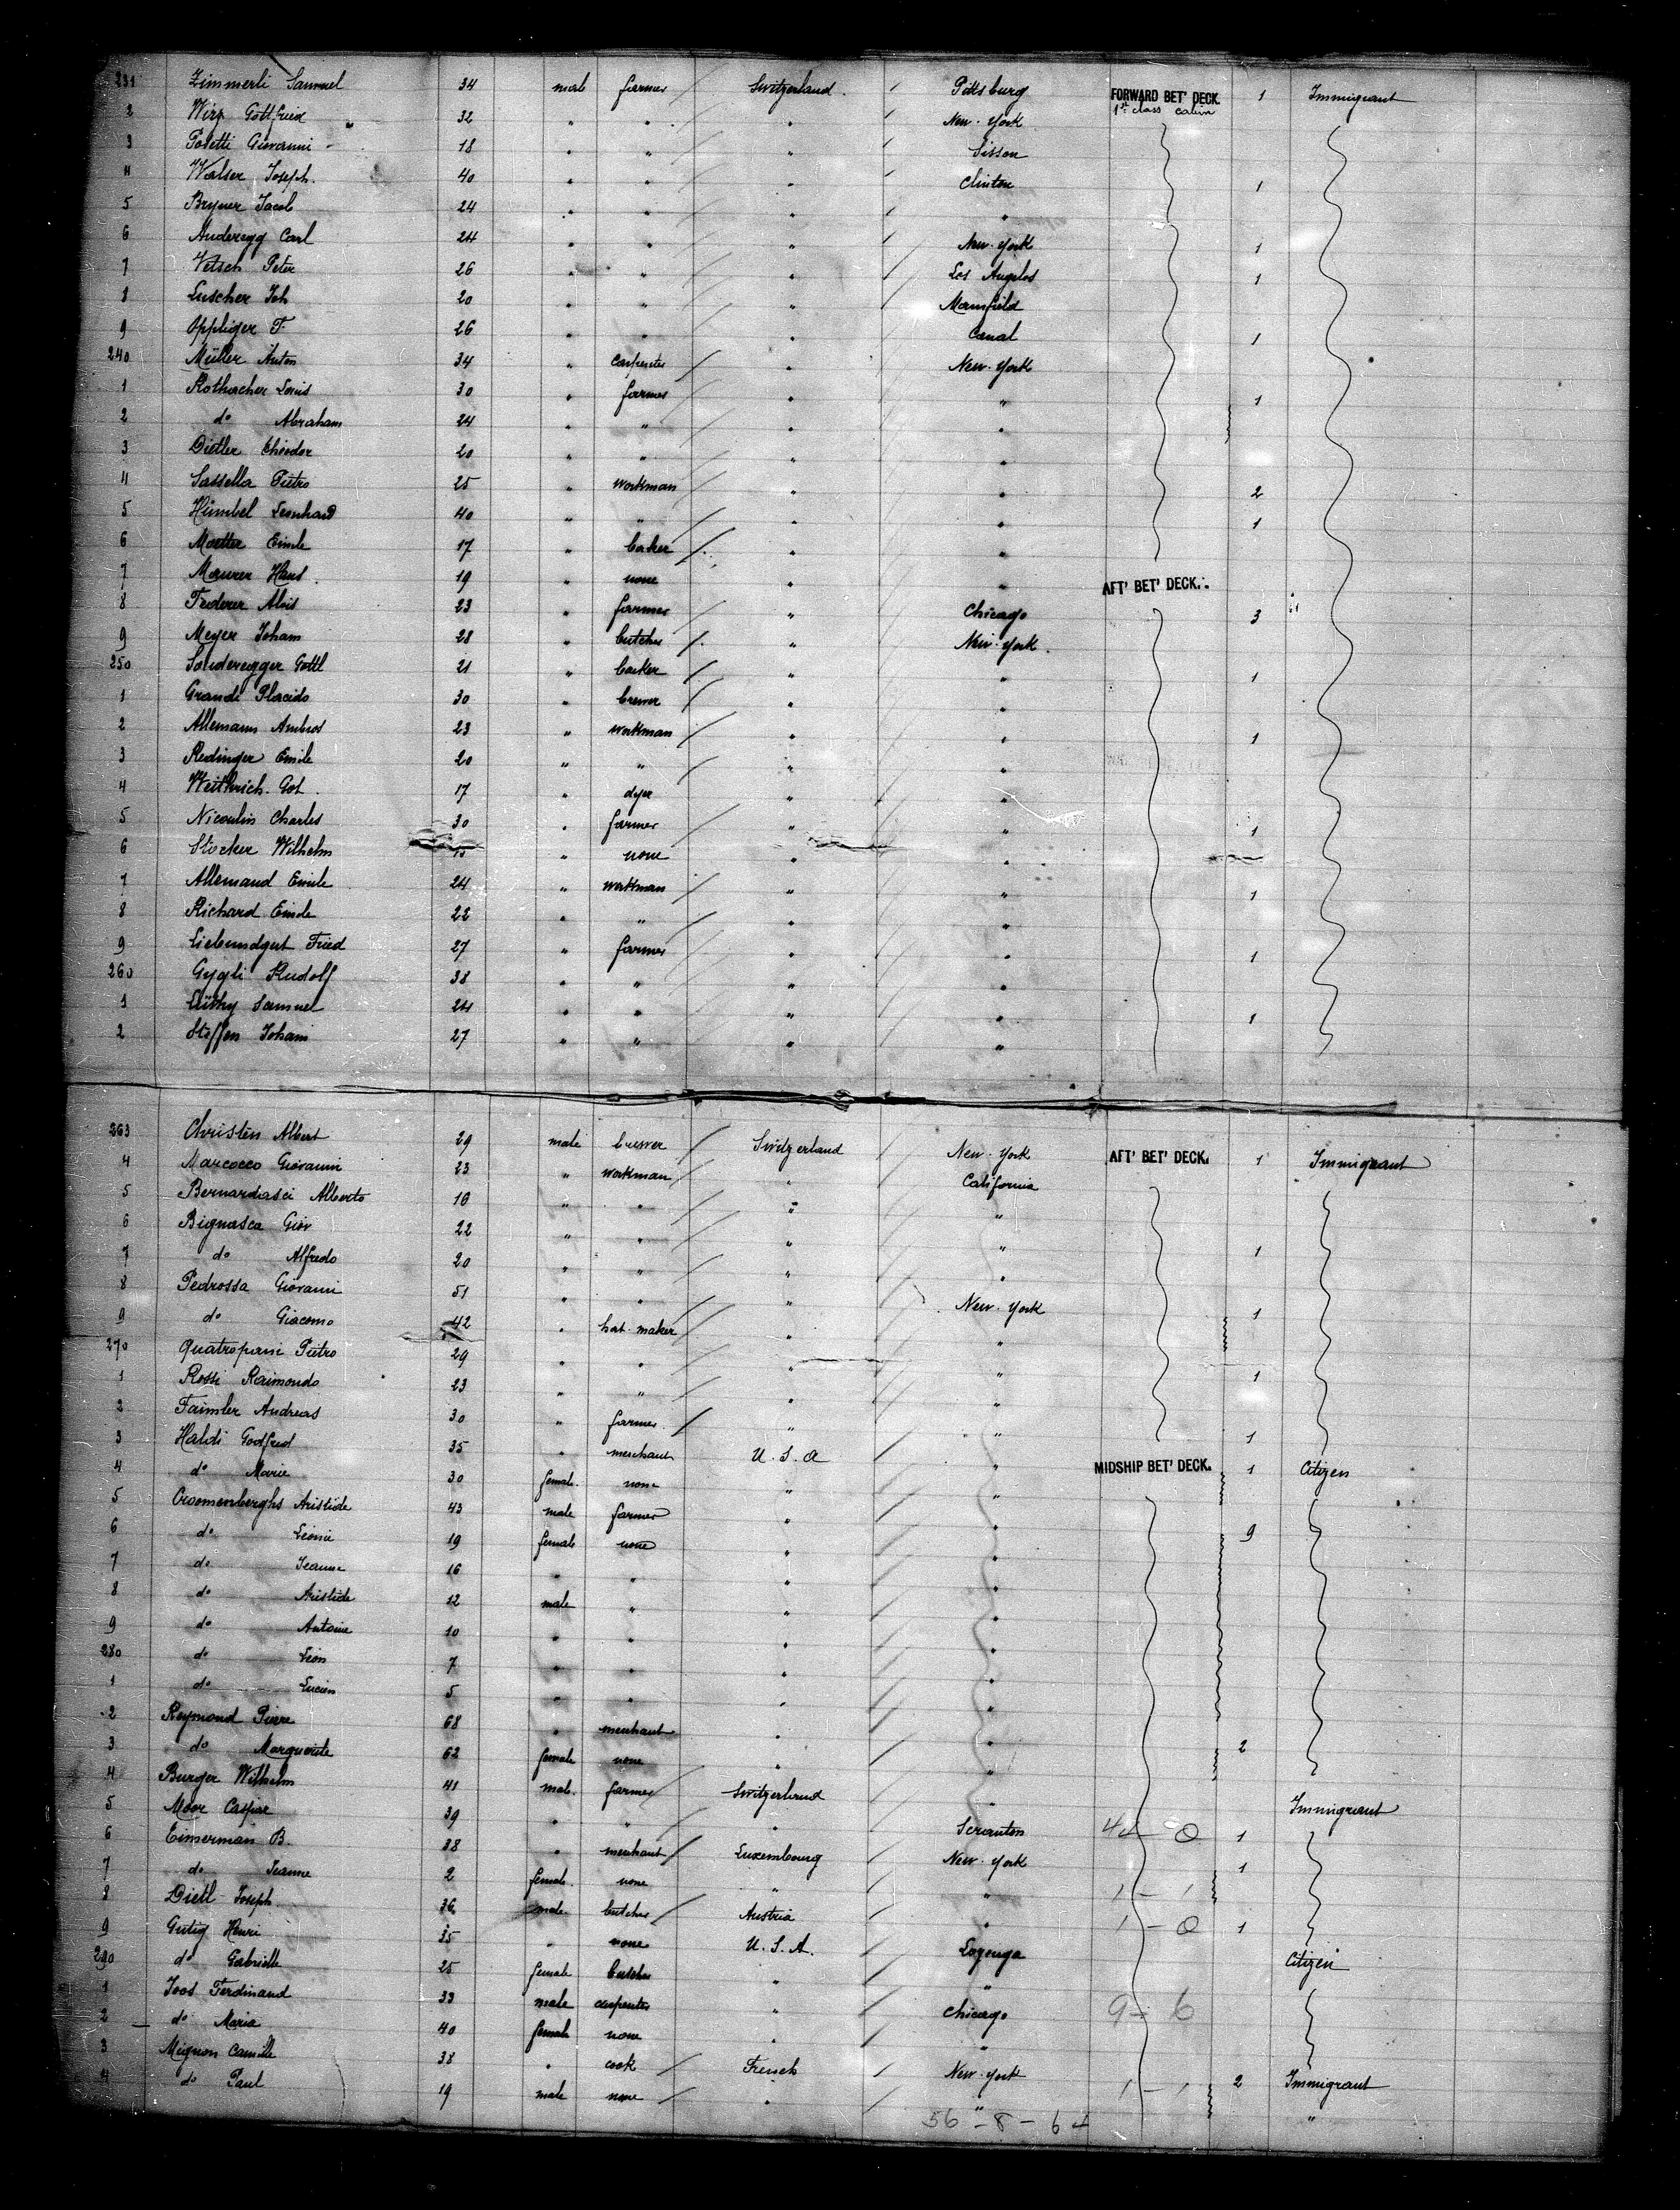 231 Zimmerli Samuel 34 male farmer Switzerland Pittsburg FORWARD BET' DECK. 1 Immigrant
2 Wirz Gottfried 32 " " " New-York 1st class cabin
3 Poletti Giovanni 18 " " " Sisson
4 Walser Joseph. 40 " " " Clinton 1
5 Bryner Jacob 24 " " " "
6 Anderegg Carl 24 " " " New-York 1
7 Vetsch Peter 26 " " " Los Angelos 1
8 Luscher Joh 20 " " " Mansfield
9 Oppliger F. 26 " " " Canal 1
240 Müller Anton 34 " carpenter " New-York
1 Rothacher Louis 30 " farmer " " 1
2 do Abraham 24 " " " "
3 Dietler Théodor 20 " " " "
4 Sassella Pietro 25 " workman " " 2
5 Humbel Leonhard 40 " " " " 1
6 Moetter Emile 17 " baker " "
7 Maurer Hans 19 " none " " AFT' BET' DECK.
8 Federer Alois 23 " farmer " Chicago 3
9 Meyer Johann 28 " butcher " New-York.
250 Sonderegger Gottl 21 " baker " " 1
1 Grandi Placido 30 " brewer " "
2 Allemann Ambros 23 " workman " " 1
3 Redinger Emile 20 " " " "
4 Weithrich. Got. 17 " dyer " "
5 Nicoulin Charles 30 " farmer " " 1
6 Stocker Wilhelm " none " "
7 Allemand Emile 24 " workman " " 1
8 Richard Emile 22 " " " "
9 Liebundgut Fried 27 " farmer " " 1
260 Gygli Rudolf 38 " " " "
1 Lüthy Samuel 24 " " " " 1
2 Steffen Johann 27 " " " "
263 Christen Albert 29 male brewer Switzerland New-York AFT' BET' DECK. 1 Immigrant
4 Marcocco Giovanni 23 " workman " California
5 Bernardasci Alberto 18 " " " "
6 Bignasca Giov 22 " " " "
7 do Alfredo 20 " " " " 1
8 Pedrossa Giovanni 51 " " " New-York
9 do Giacomo 42 " hat-maker " " 1
270 Quatropani Pietro 29 " " " "
1 Rossi Raimondo 23 " " " " 1
2 Faimler Andreas 30 " farmer " " 1
3 Haldi Godfried 35 " merchant U.S.A " MIDSHIP BET' DECK. 1 Citizen
4 do Marie 30 female. none " "
5 Croomenberghs Aristide 43 male farmer " " 9
6 do Léonie 19 female none " "
7 do Jeanne 16 " " " "
8 do Aristide 12 male " " "
9 do Antoine 10 " " " "
280 do Léon 7 " " " "
1 do Lucien 5 " " " "
2 Reymond Pierre 68 " merchant " " 2
3 do Marguerite 62 female none " "
4 Burger Wilhelm 41 male. farmer Switzerland " Immigrant
5 Moor Caspar 39 " " " Scranton 1
6 Eimerman B. 38 " merchant Luxembourg New-York 1
7 do Jeanne 2 female. none " " 1 - 1
8 Dietl Joseph 36 male. butcher Austria " 1 - 0 1
9 Gutig Henri 35 " none U.S.A. Citizen
290 do Gabrielle 25 female butcher " "
1 Joos Ferdinand 33 male carpenter " Chicago 9 - 6
2 do Maria 40 female none " "
3 Mignon Camille 38 " cook French New-York 2 Immigrant
4 do Paul 19 male none " " 1 - 1 "
56 - 8 - 64